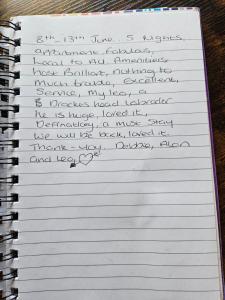 8th - 13th June. 5 Nights,
appartment fabulas,
Local to All Amenities
Host Brilliant, nothing to
Much trouble, Excellent,
Service, My leo, a
Brockes head Labrador
he is huge, loved it,
Deffnatley, a must stay
We will be back, loved it.
Thank-you. Debbie, Alan
and Leo,